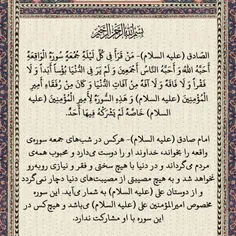 بسم الله الرحمن الرحیم
الصّادق (علیه السلام)- مَن قَرَأَ فِی کُلِّ لَیلَةِ جُمُعَةٍ سُورَةَ الْوَاقِعَةِ
أَحَبَّهُ اللَّهُ وَ أَحَبَّهُ النَّاسُ أَجْمَعِینَ وَ لَمْ یَرَ فِی الدُّنْیَا بُؤْساً أَبَداً وَ لَا
فَقْراً وَ لَا فَاقَةً وَ لَا آفَةً مِنْ آفَاتِ الدُّنْیَا وَ کَانَ مِنْ رُفَقَاءِ أَمِیرِ
الْمُؤْمِنِینَ (علیه السلام) وَ هَذِهِ السُّورَةُ لِأَمِیرِ الْمُؤْمِنِینَ (علیه
السلام) خَاصَّةً لَمْ یَشْرَکْهُ فِیهَا أَحَدٌ.
امام صادق (علیه السلام)- هرکس در شب‌های جمعه سوره‌ی
واقعه را بخواند، خداوند او را دوست می‌دارد و محبوب همه‌ی
مردم می‌گرداند و در دنیا با هیچ سختی و فقر و نیازی روبه‌رو
نخواهد شد و به هیچ مصیبتی از مصیبت‌های دنیا دچار نمی‌گردد
و از دوستان علی (علیه السلام) به شمار می‌آید. این سوره
مخصوص امیرالمؤمنین علی (علیه السلام) می‌باشد و هیچ‌کس در
این سوره با او مشارکت ندارد.